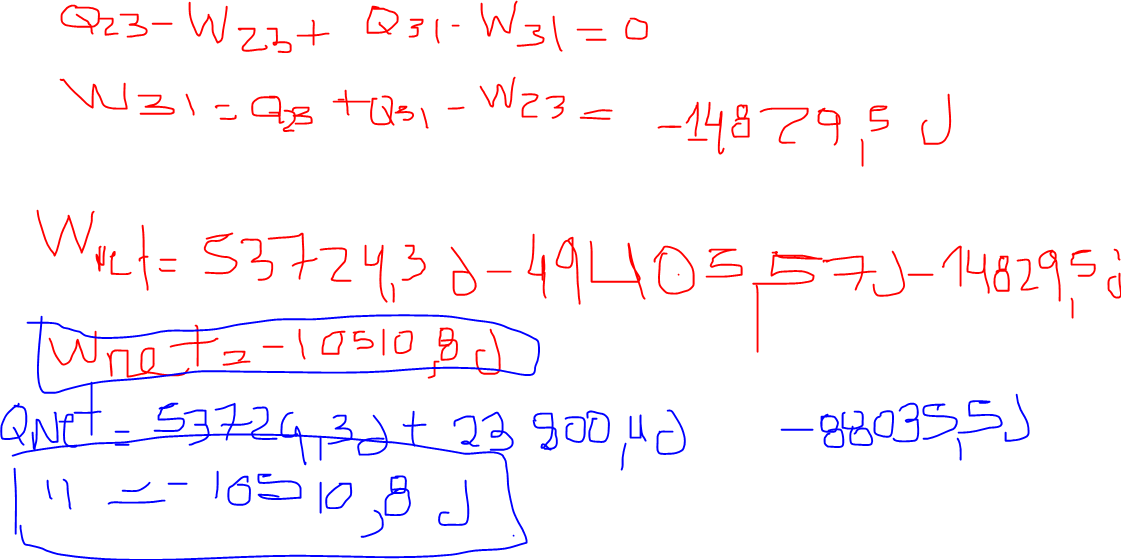 Q23 - W23 + Q31 - W31 = 0
W31 = Q23 + Q31 - W23 = -14829,5 J
Wnet = 53724,3 J - 49405,57 J - 14829,5 j
Wnet = -10510,8 J
QNet = 53724,3 J + 23800,4 J - 88035,5 J
11 = -10510,8 J